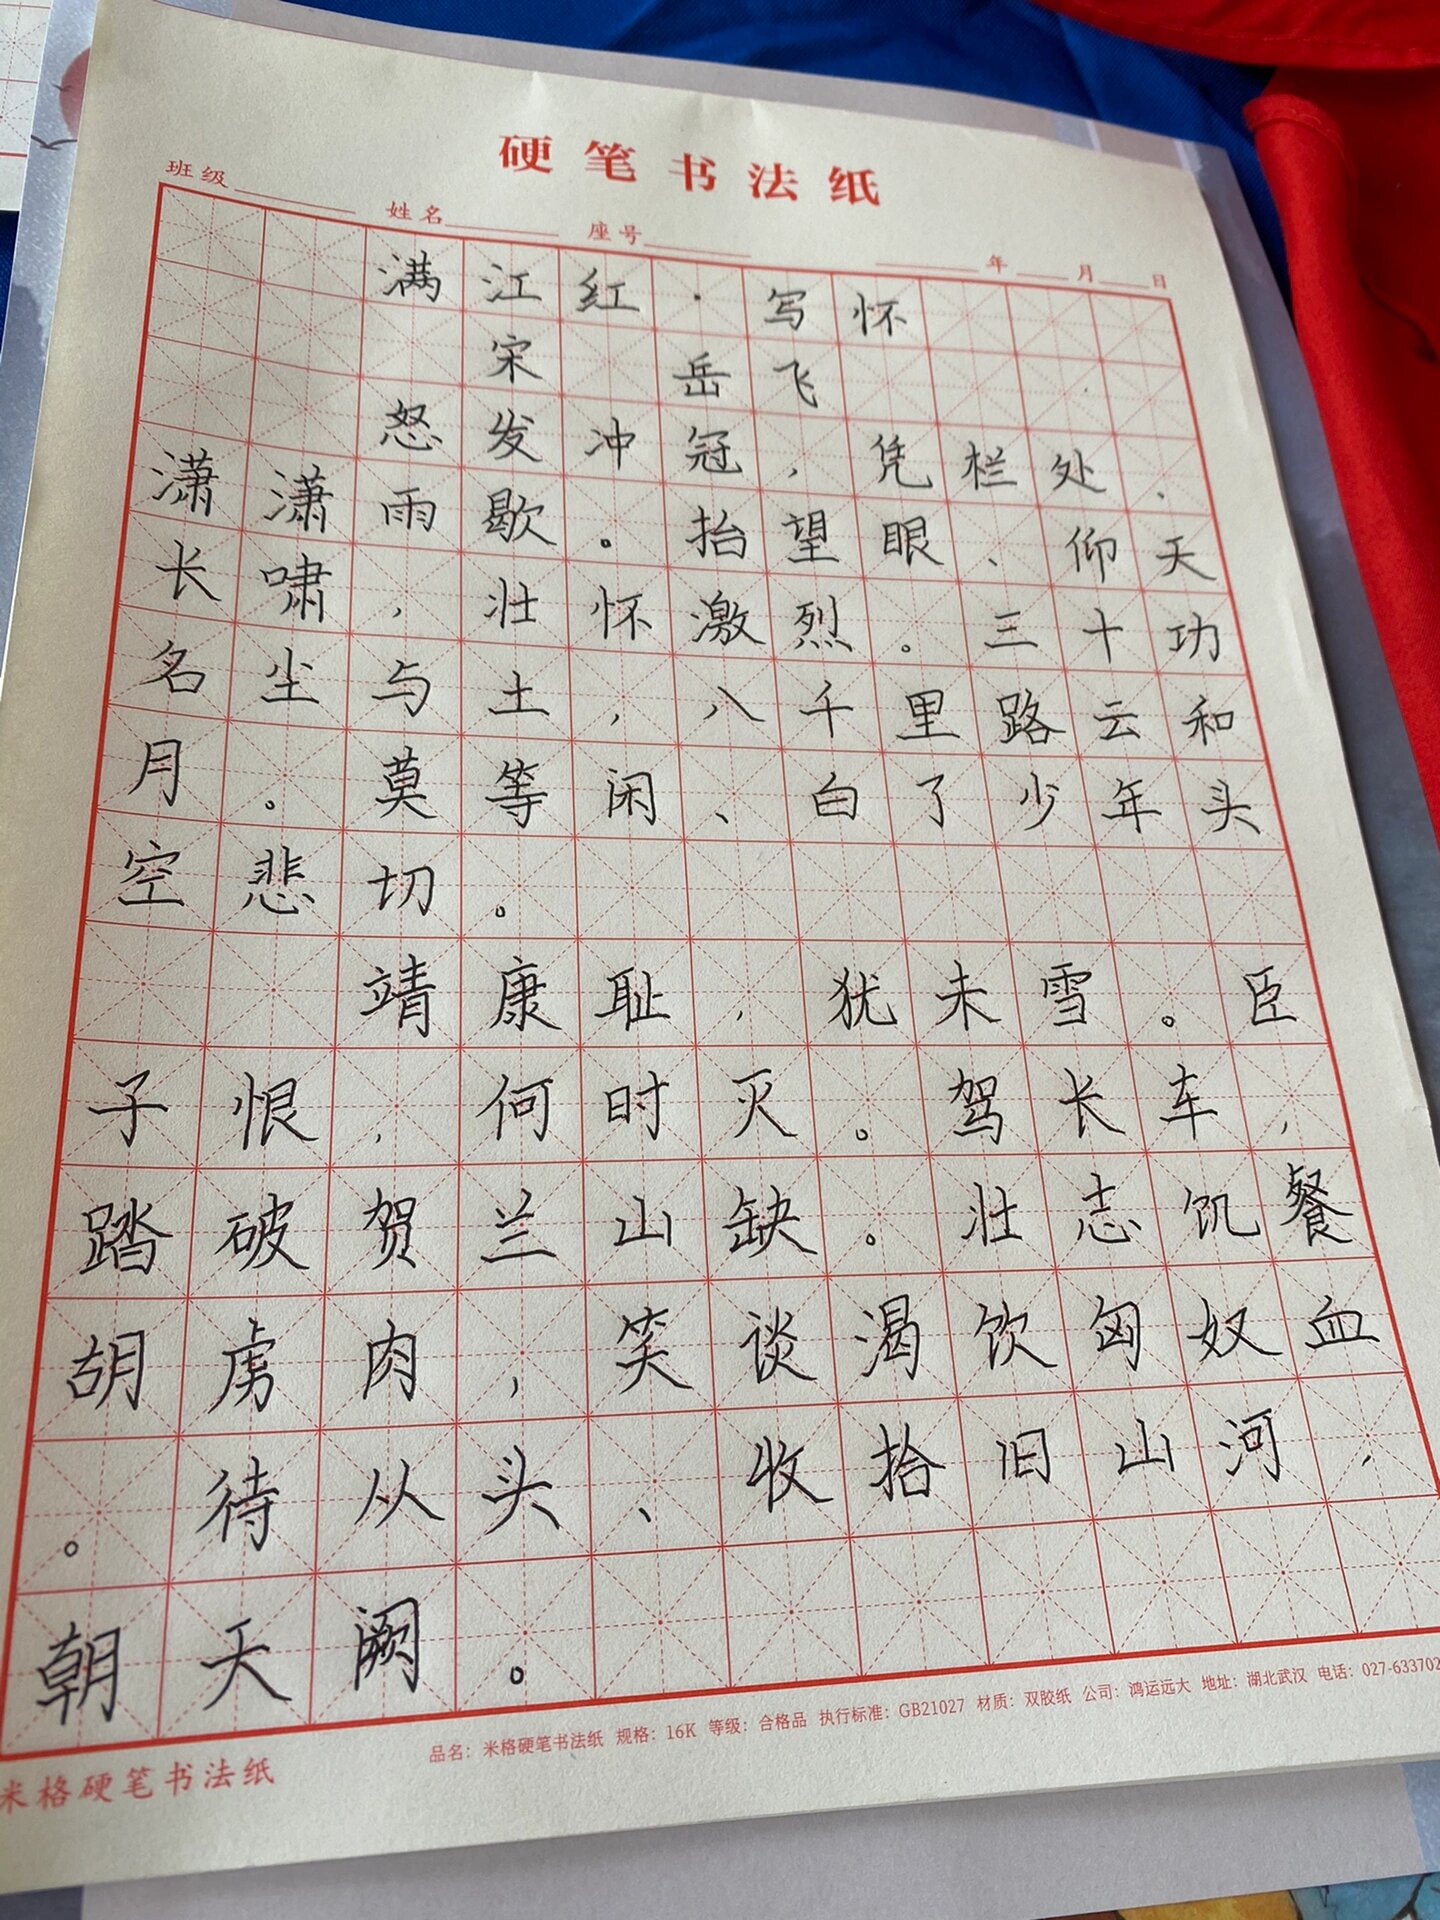 硬笔书法纸
班级 姓名 座号 年 月 日
满江红·写怀
宋 岳飞
怒发冲冠，凭栏处、
潇潇雨歇。抬望眼、仰天
长啸，壮怀激烈。三十功
名尘与土，八千里路云和
月。莫等闲、白了少年头
空悲切。
靖康耻，犹未雪。臣
子恨，何时灭。驾长车，
踏破贺兰山缺。壮志饥餐
胡虏肉，笑谈渴饮匈奴血
。待从头、收拾旧山河，
朝天阙。
品名：米格硬笔书法纸 规格：16K 等级：合格品 执行标准：GB21027 材质：双胶纸 公司：鸿运远大 地址：湖北武汉 电话：027-633702
米格硬笔书法纸